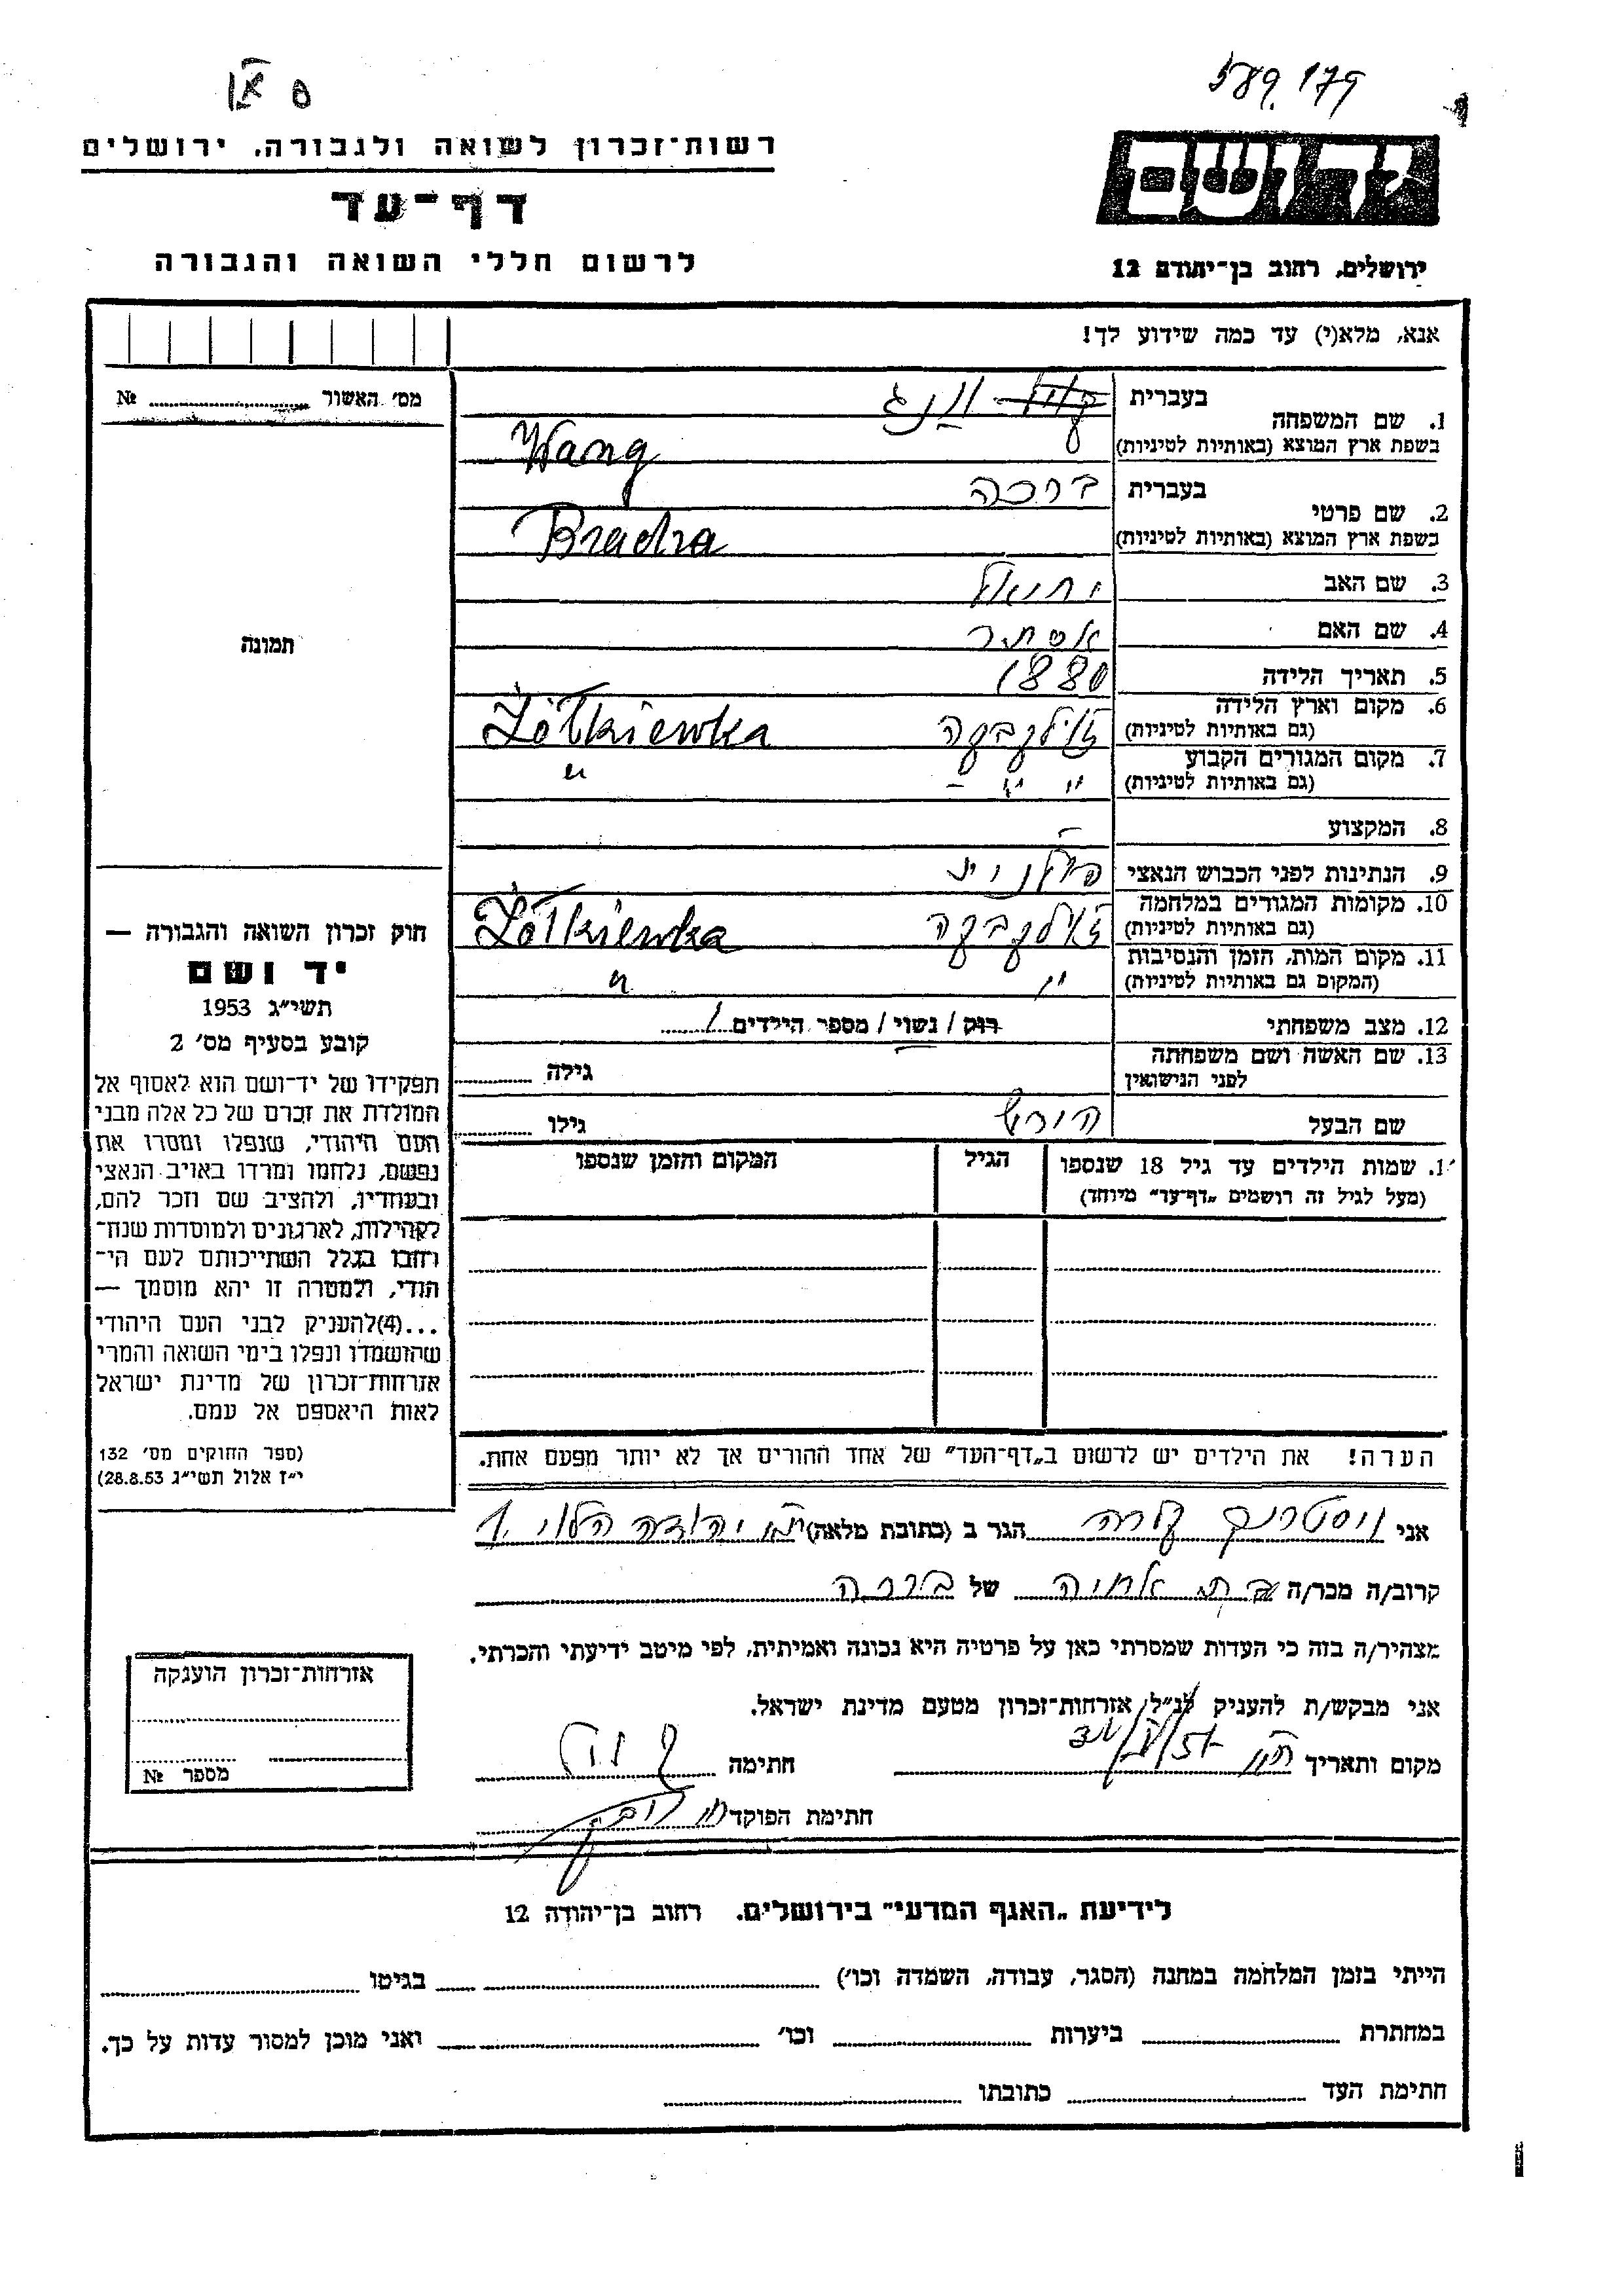 589179
רשות־זכרון לשואה ולגבורה. ירושלים
דף־עד
לרשום חללי השואה והגבורה
יד ושם
ירושלים, רחוב בן־יהודה 12
אנא, מלא(י) עד כמה שידוע לך!
מס׳ האשור № ........
1. שם המשפחה
בעברית
ונג
בשפת ארץ המוצא (באותיות לטיניות)
Wang
2. שם פרטי
בעברית
ברכה
בשפת ארץ המוצא (באותיות לטיניות)
Bracha
3. שם האב
יחיאל
4. שם האם
אסתר
5. תאריך הלידה
1880
6. מקום וארץ הלידה
(גם באותיות לטיניות)
זולקבקה Żółkiewka
7. מקום המגורים הקבוע
(גם באותיות לטיניות)
״ ״ - ״
8. המקצוע
9. הנתינות לפני הכבוש הנאצי
פולנית
10. מקומות המגורים במלחמה
(גם באותיות לטיניות)
זולקבקה Żółkiewka
11. מקום המות, הזמן והנסיבות
(המקום גם באותיות לטיניות)
״ ״
12. מצב משפחתי
רוק / נשוי / מספר הילדים 1
13. שם האשה ושם משפחתה
לפני הנישואין
גילה ........
שם הבעל
הירש
גילו ........
1. שמות הילדים עד גיל 18 שנספו
(מעל לגיל זה רושמים „דף־עד״ מיוחד)
הגיל
המקום והזמן שנספו
תמונה
חוק זכרון השואה והגבורה —
יד ושם
תשי״ג 1953
קובע בסעיף מס׳ 2
תפקידו של יד־ושם הוא לאסוף אל
המולדת את זכרם של כל אלה מבני
העם היהודי, שנפלו ומסרו את
נפשם, נלחמו ומרדו באויב הנאצי
ובעוזריו, ולהציב שם וזכר להם,
לקהילות, לארגונים ולמוסדות שנח־
רחבו בגלל השתייכותם לעם הי־
הודי, ולמטרה זו יהא מוסמך —
...(4)להעניק לבני העם היהודי
שהושמדו ונפלו בימי השואה והמרי
אזרחות־זכרון של מדינת ישראל
לאות היאספם אל עמם.
(ספר החוקים מס׳ 132
י״ז אלול תשי״ג 28.8.53)
הערה! את הילדים יש לרשום ב„דף־העד״ של אחד ההורים אך לא יותר מפעם אחת.
אני ויסטרניק קלרה הגר ב (כתובת מלאה) יהודה הלוי 1
קרוב/ה מכר/ה בת אחיה של ברכה
מצהיר/ה בזה כי העדות שמסרתי כאן על פרטיה היא נכונה ואמיתית, לפי מיטב ידיעתי והכרתי.
אני מבקש/ת להעניק לנ״ל אזרחות־זכרון מטעם מדינת ישראל.
מקום ותאריך
חתימה
חתימת הפוקד
אזרחות־זכרון הוענקה
מספר №
לידיעת „האגף המדעי״ בירושלים. רחוב בן־יהודה 12
הייתי בזמן המלחמה במחנה (הסגר, עבודה, השמדה וכו׳) ........ בגיטו ........
במחתרת ........ ביערות ........ וכו׳ ........ ואני מוכן למסור עדות על כך.
חתימת העד ........ כתובתו ........